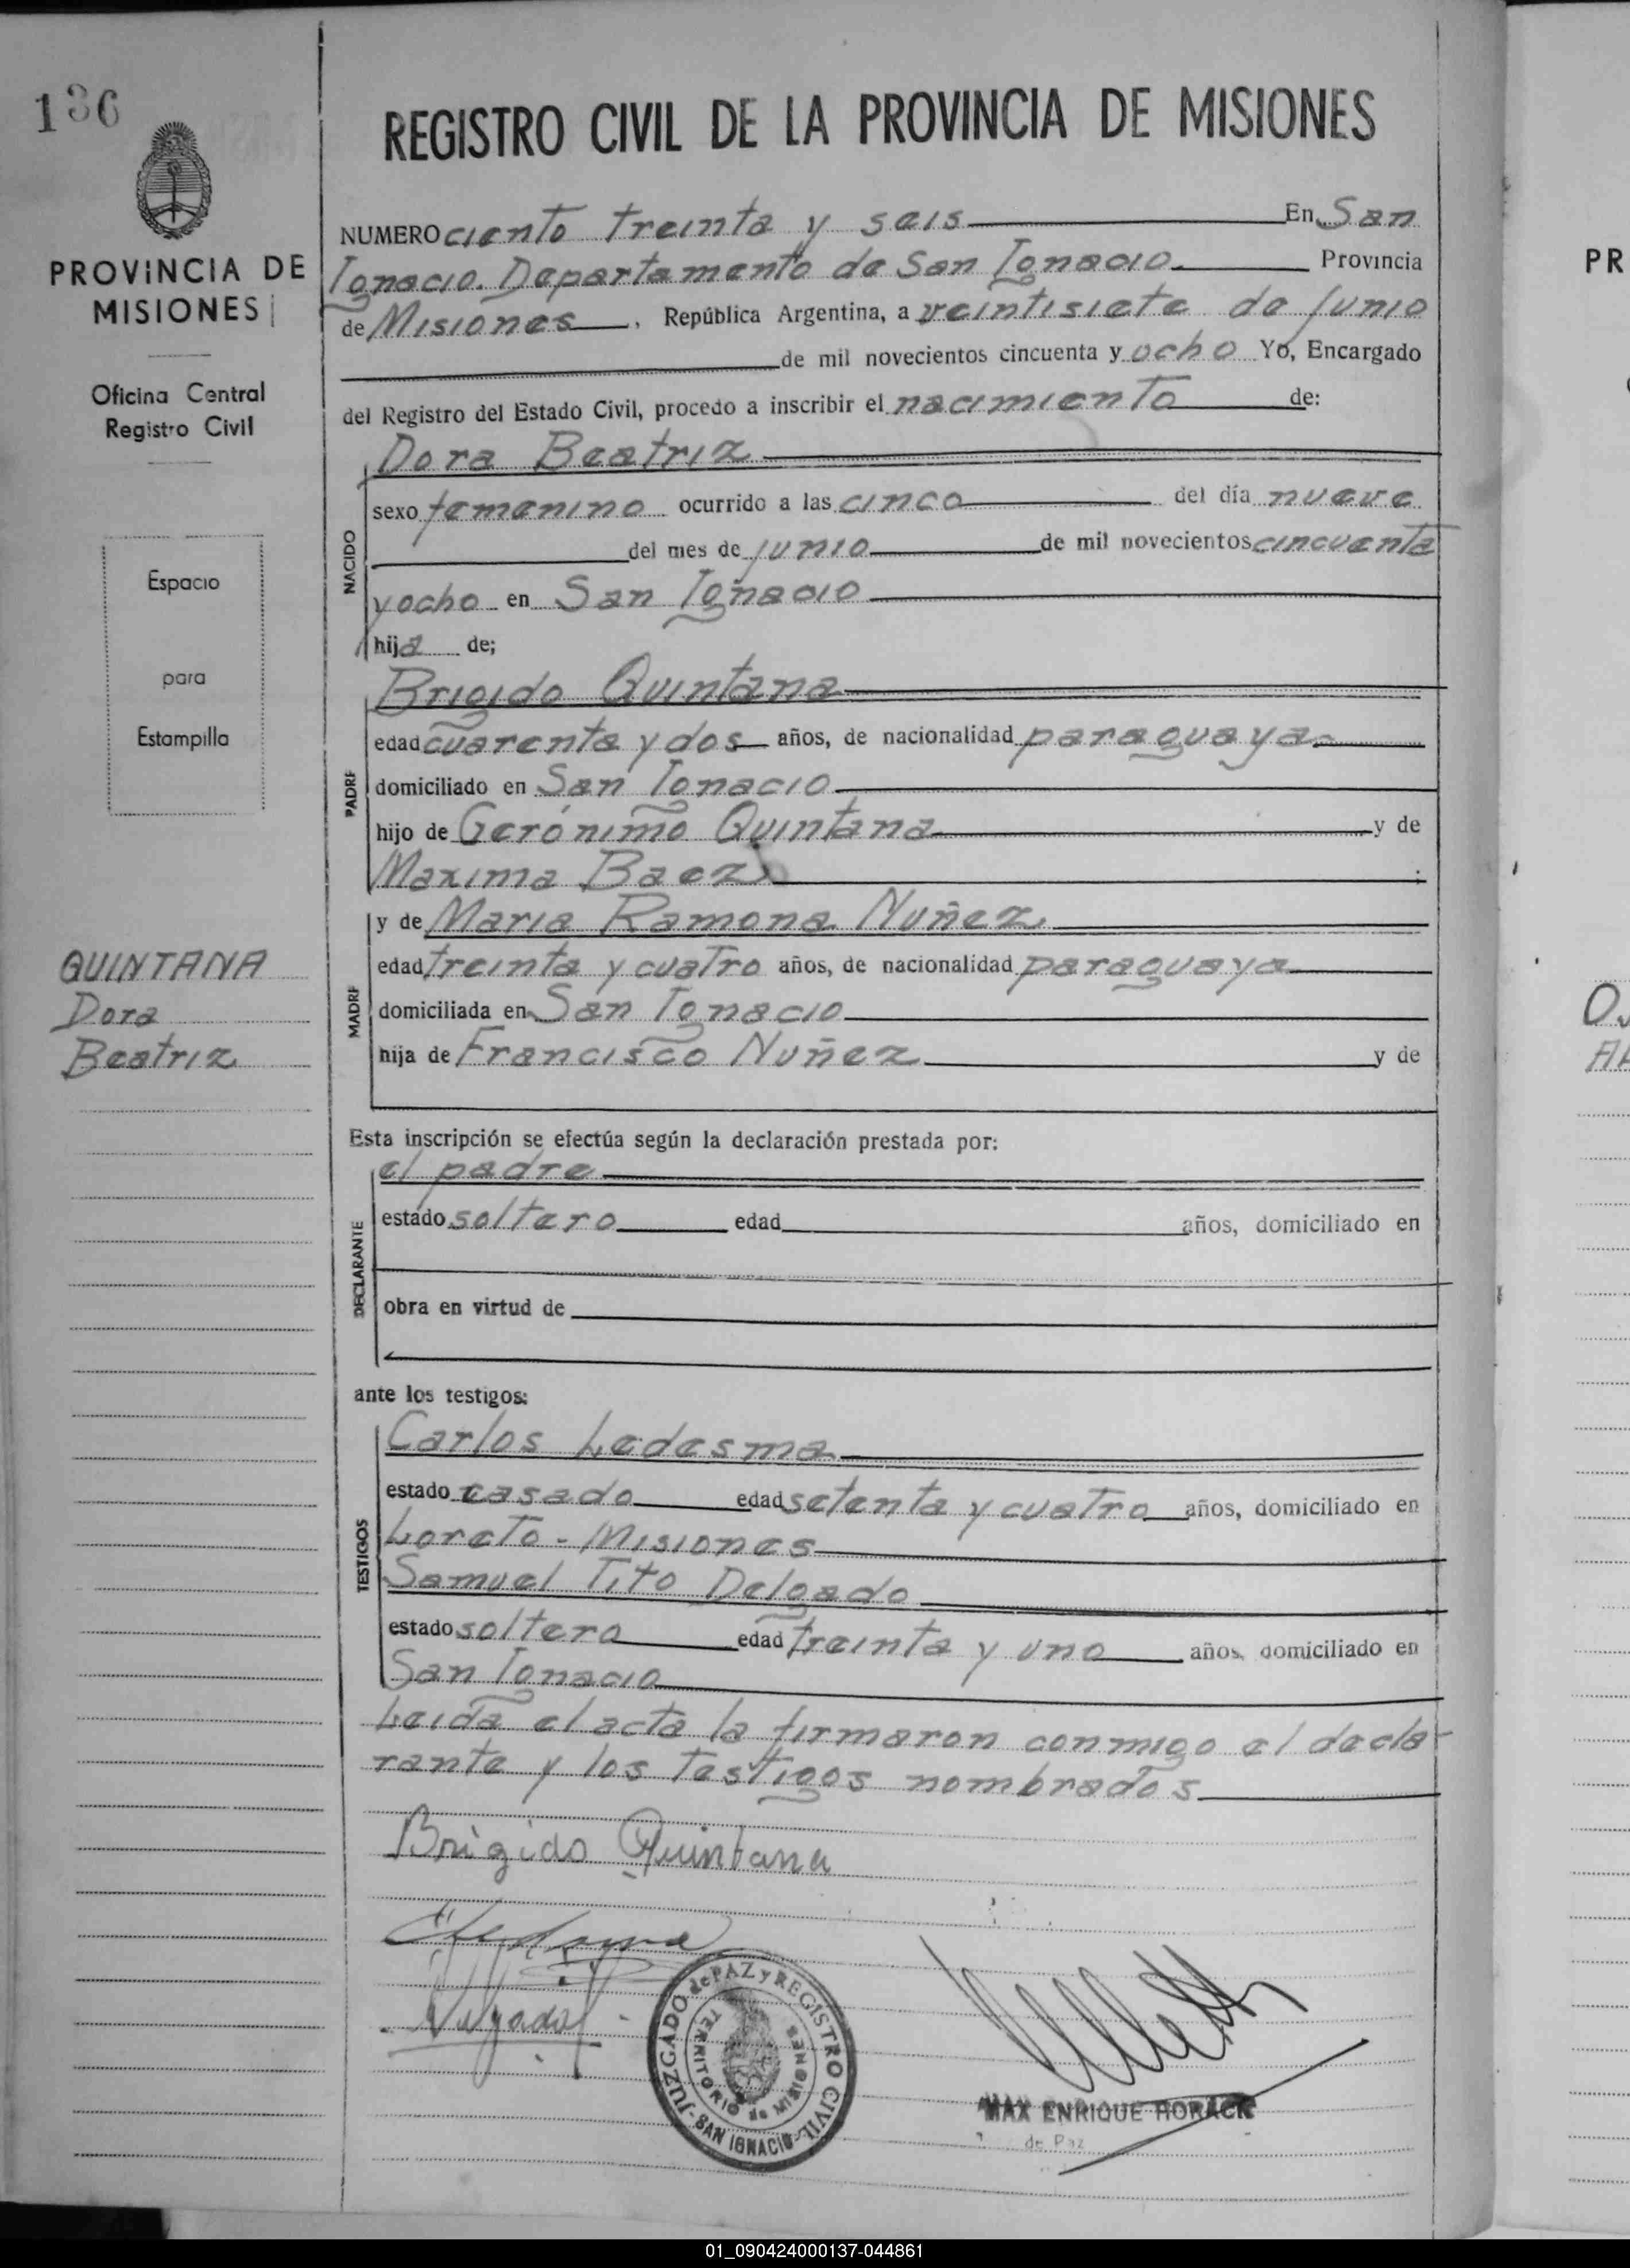 136
REGISTRO CIVIL DE LA PROVINCIA DE MISIONES
PROVINCIA DE
MISIONES
Oficina Central
Registro Civil
Espacio
para
Estampilla
QUINTANA
Dora
Beatriz
NUMERO ciento treinta y seis En San
Ignacio. Departamento de San Ignacio. Provincia
de Misiones, República Argentina, a veintisiete de Junio
de mil novecientos cincuenta y ocho Yo, Encargado
del Registro del Estado Civil, procedo a inscribir el nacimiento de:
NACIDO
Dora Beatriz
sexo femenino ocurrido a las cinco del día nueve
del mes de junio de mil novecientos cincuenta
y ocho en San Ignacio
hija de;
PADRE
Brigido Quintana
edad cuarenta y dos años, de nacionalidad paraguaya
domiciliado en San Ignacio
hijo de Gerónimo Quintana y de
Maxima Baez ;
MADRE
y de Maria Ramona Nuñez
edad treinta y cuatro años, de nacionalidad paraguaya
domiciliada en San Ignacio
hija de Francisco Nuñez y de
Esta inscripción se efectúa según la declaración prestada por:
DECLARANTE
el padre
estado soltero edad años, domiciliado en
obra en virtud de
ante los testigos:
TESTIGOS
Carlos Ledesma
estado casado edad setenta y cuatro años, domiciliado en
Loreto - Misiones
Samuel Tito Delgado
estado soltero edad treinta y uno años, domiciliado en
San Ignacio
Leida el acta la firmaron conmigo el decla-
rante y los testigos nombrados
Brigido Quintana
CLedesma
Delgado
JUZGADO de PAZ y REGISTRO CIVIL
- SAN IGNACIO -
TERRITORIO de MISIONES
MAX ENRIQUE HORACK
de Paz
PR
01_090424000137-044861